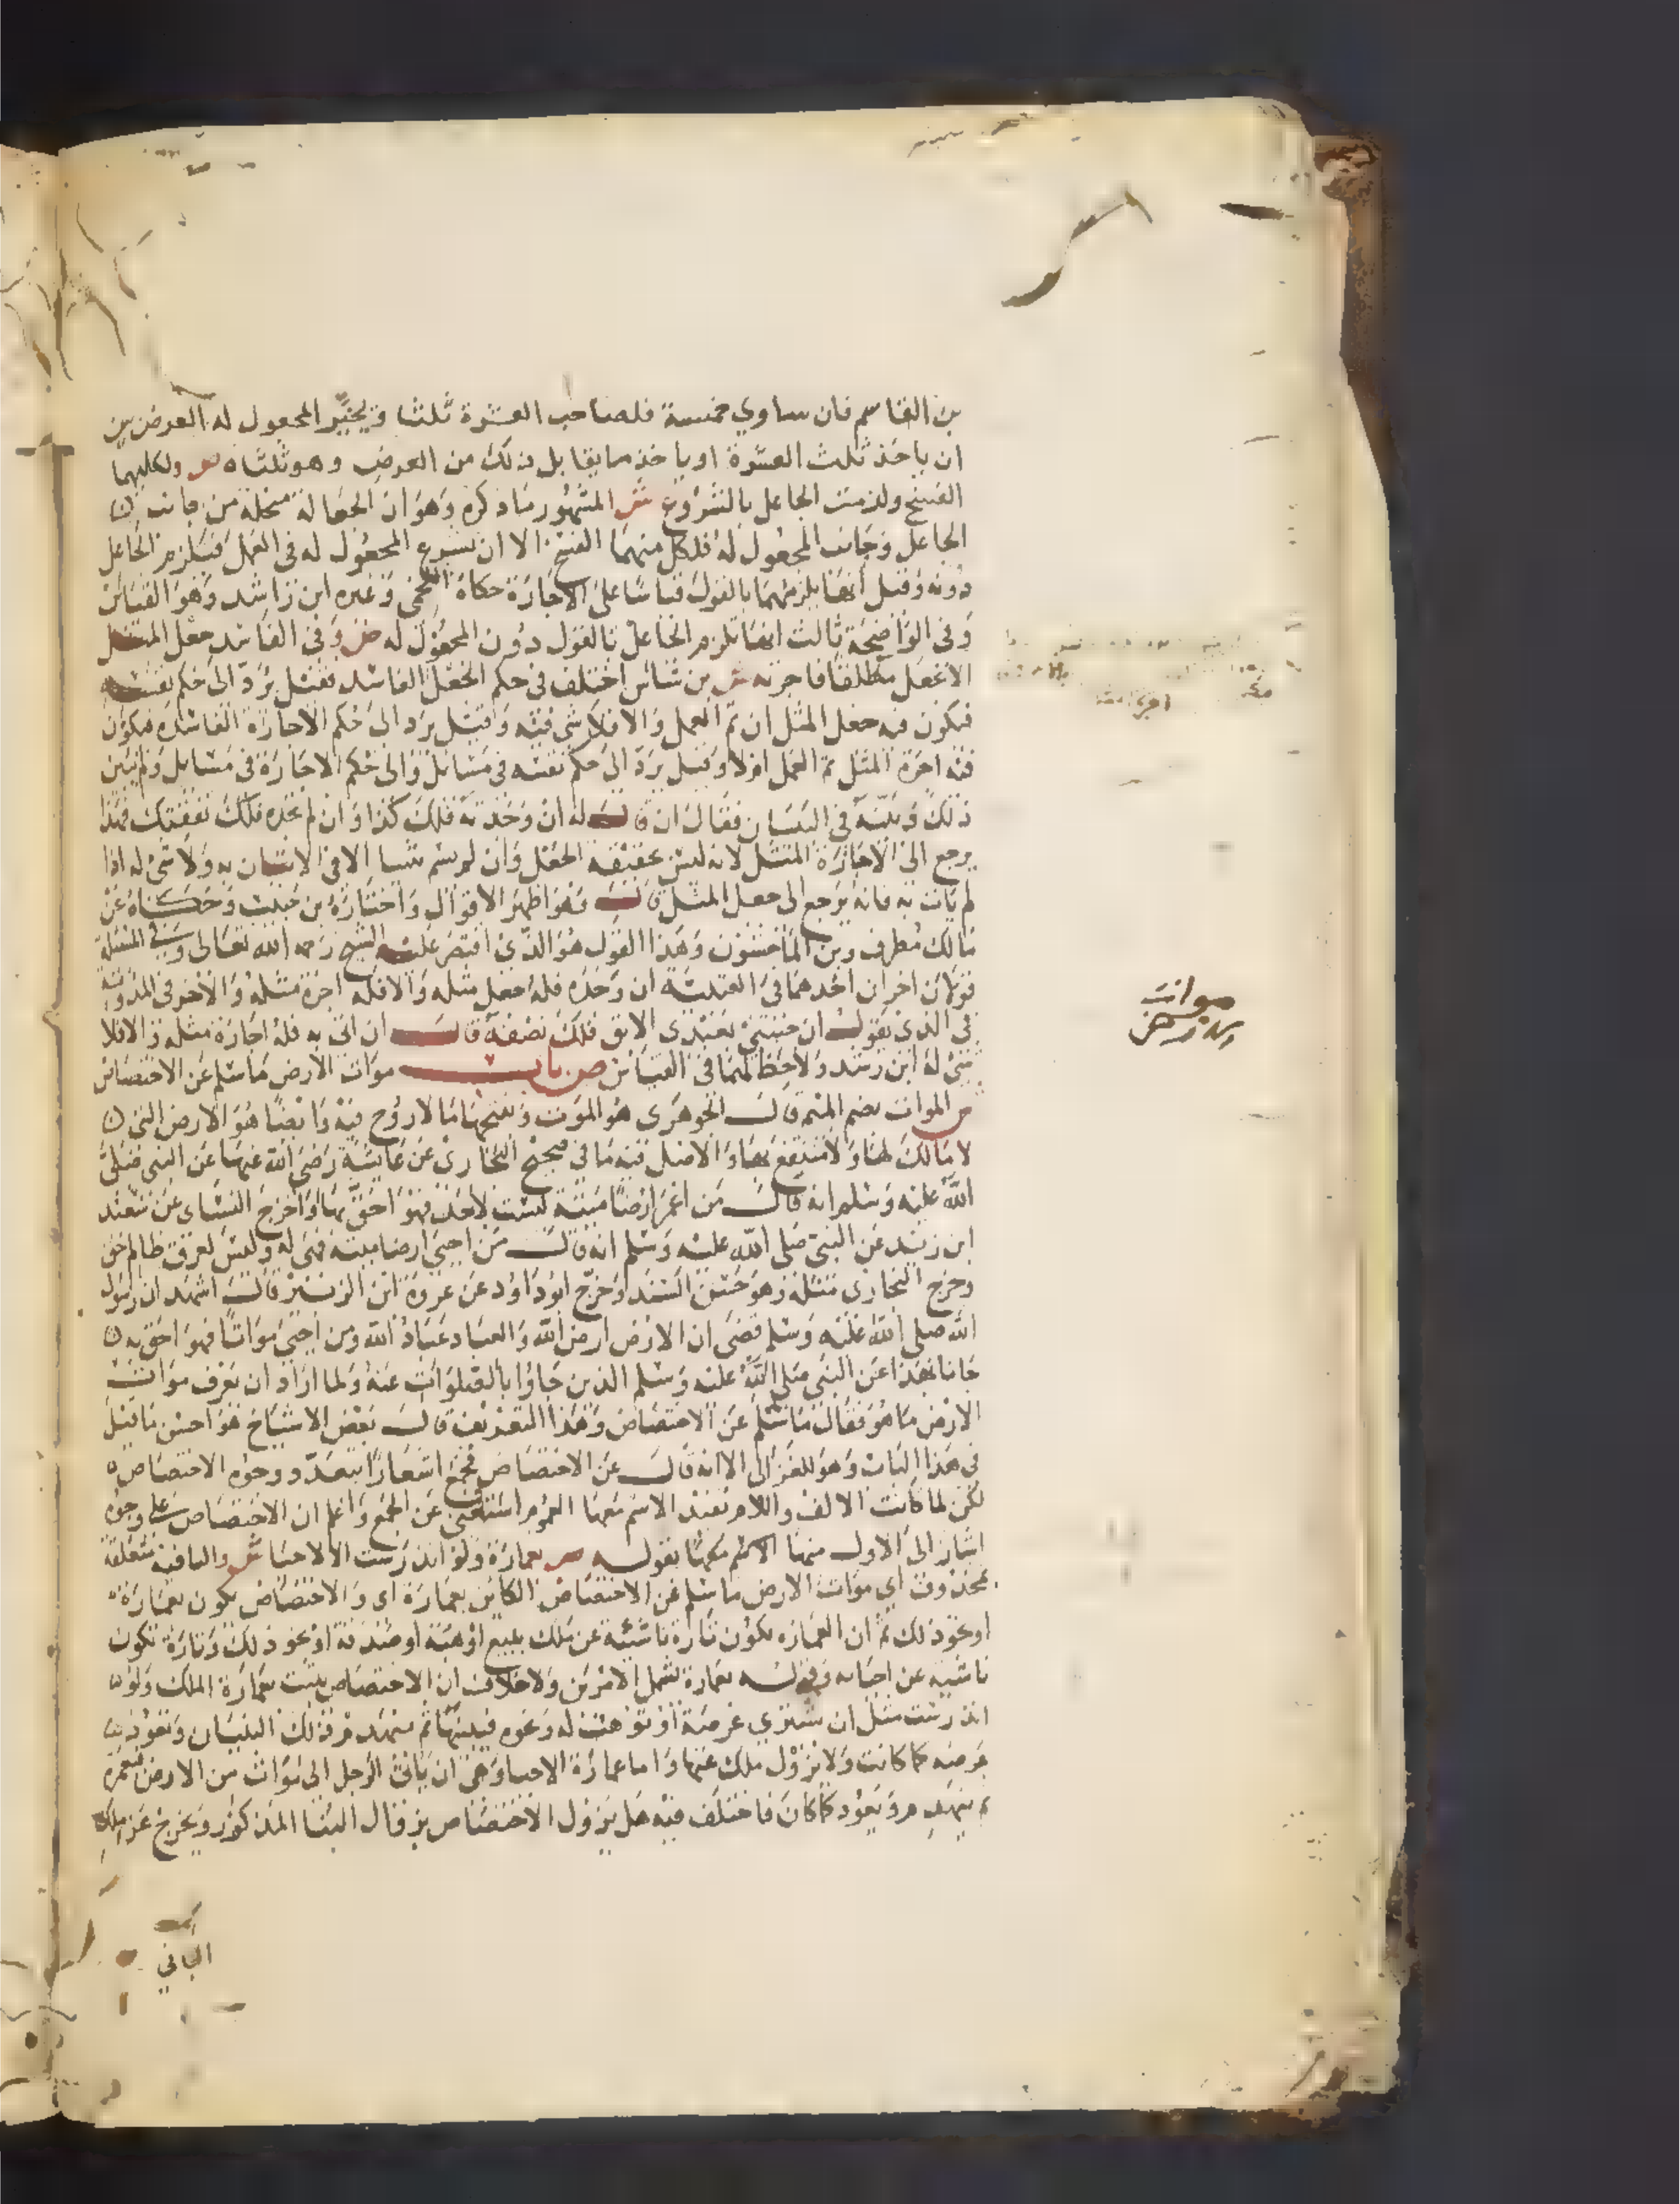 بن القاسم فان ساوي خمسة فلصاحب العشرة ثلثا ويخير المجعول له العرض بين
ان ياخذ ثلث العشرة او ياخذ ما يقابل ذلك من العرض وهو ثلثاه ص ولكليهما
الفسخ ولزمت الجاعل بالشروع ش المشهور ما ذكره وهو ان الجعالة منحلة من جانب
الجاعل وجانب المجعول له فلكل منهما الفسخ الا ان يشرع المجعول له في العمل فتلزم الجاعل
دونه وقيل انها يلزمهما بالقول قياسا على الاجارة حكاه اللخمي وغيره ابن راشد وهو القياس
وفي الواضحة ثالث انها تلزم الجاعل بالقول دون المجعول له ص وفي الفاسد جعل المثل
الا بجعل مطلقا فاجرته ش بن شاس اختلف في حكم الجعل الفاسد فقيل يرد الى حكم نفسه
فيكون فيه جعل المثل ان تم العمل والا فلا شي فيه وقيل يرد الى حكم الاجارة الفاسدة فيكون
فيه اجرة المثل تم العمل ام لا وقيل يرد الى حكم نفسه في مسايل والى حكم الاجارة في مسايل ولم يبين
ذلك وبينه في البيان فقال ان قال له ان وجدته فلك كذا وان لم تجده فلك نفقتك فهذا
يرجع الى الاجارة المثل لانه ليس بحقيقة الجعل وان لم يسم شيا الا في الاتيان به ولا شي له اذا
لم يات به فانه يرجع الى جعل المثل قال وهو اظهر الاقوال واختاره بن حبيب وحكاه عن
مالك مطرف وبن الماجشون وهذا القول هو الذي اقتصر عليه الشيخ رحمه الله تعالى وبقي في المسئلة
قولان اخران احدهما في العتبية ان وجده فله جعل مثله والا فله اجرة مثله والاخر في المدونة
في الذي يقول ان جيتني بعبدي الابق فلك نصفه قال ان اتى به فله اجارة مثله والا فلا
شي له ابن رشد ولا حظ لهما في القياس ص باب موات الارض ما سلم عن الاختصاص
ش الموات بضم الميم قال الجوهري هو الموت وبفتحها ما لا روح فيه وايضا هو الارض التي
لا مالك لها ولا منتفع بها والاصل فيه ما في صحيح البخاري عن عايشة رضي الله عنها عن النبي صلى
الله عليه وسلم انه قال من اعمر ارضا ميتة ليست لاحد فهو احق بها واخرج النساي عن سعيد
ابن زيد عن النبي صلى الله عليه وسلم انه قال من احيي ارضا ميتة فهي له وليس لعرق ظالم حق
وخرج البخاري مثله وهو حسن السند وخرج ابو داود عن عروة ابن الزبير قال اشهد ان رسول
الله صلى الله عليه وسلم قضى ان الارض ارض الله والعباد عباد الله ومن احيي مواتا فهو احق به
جانا بهذا عن النبي صلى الله عليه وسلم الذين جاوا بالصلوات عنه ولما اراد ان يعرف موات
الارض ما هو فقال ما سلم عن الاختصاص وهذا التعريف قال بعض الاشياخ هو احسن ما قيل
في هذا الباب وهو للغزالي الا انه قال عن الاختصاص فجمع اشعارا بتعدد وجوه الاختصاص
لكن لما كانت الالف واللام تفيد الاسم معها العموم استغنى عن الجمع واعلم ان الاختصاص على وجوه
اشار الى الاول منها بقوله ص بعمارة ولو اندرست الا لاحيا ش والبا فيه متعلقة
بمحذوف اي موات الارض ما سلم عن الاختصاص الكاين بعمارة اي والاختصاص يكون بعمارة
او نحو ذلك ثم ان العمارة يكون تارة ناشية عن ملك ببيع او هبة او صدقة او نحو ذلك وتارة تكون
ناشية عن احيايه وقوله بعمارة تشمل الامرين ولا خلاف ان الاختصاص يثبت بعمارة الملك ولو
اندرست مثل ان يشتري عرصة او توهب له ونحوه فيبنيها ثم ينهدم ذلك البنيان وتعود
عرصه كما كانت ولا يزول ملك عنها واما عمارة الاحيا وهي ان ياتي الرجل الى موات من الارض فيعمره
ثم ينهدم ويعود كما كان فاختلف فيه هل يزول الاختصاص بزوال البنا المذكور ويخرج عن ملكه
موات
الارض
الثاني